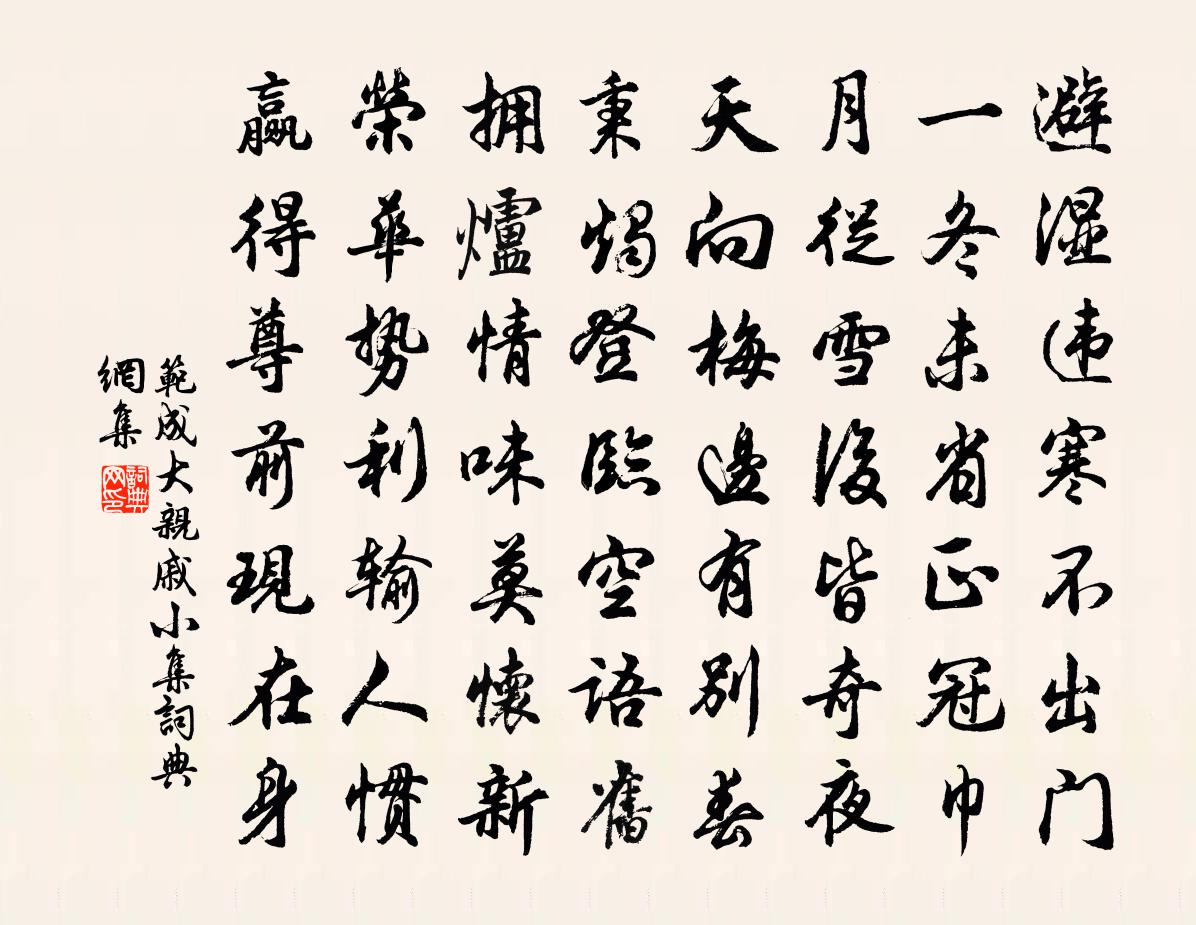 避濕违寒不出门
一冬未省正冠巾
月從雪後皆奇夜
天向梅邊有別春
秉燭登臨空語舊
拥爐情味莫懷新
榮華势利输人惯
赢得尊前現在身
範成大親戚小集詞典
網集
詞典
网印